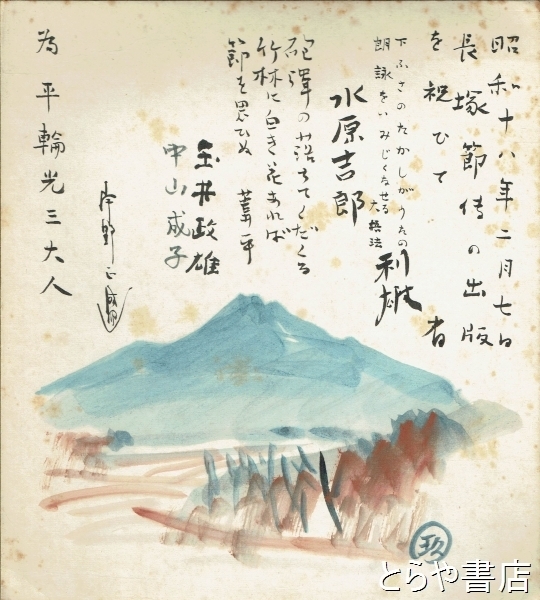 昭和十八年二月七日
長塚節傳の出版
を祝ひて
下ふさのたかしがうたの
朗詠をいみじくなせる
大悟法
利雄
水原吉郎
砲弾の落ちてくだくる
竹林に白き花あれば
節を思ひぬ
葦平
玉井政雄
中山成子
為平輪光三大人
玖
とらや書店